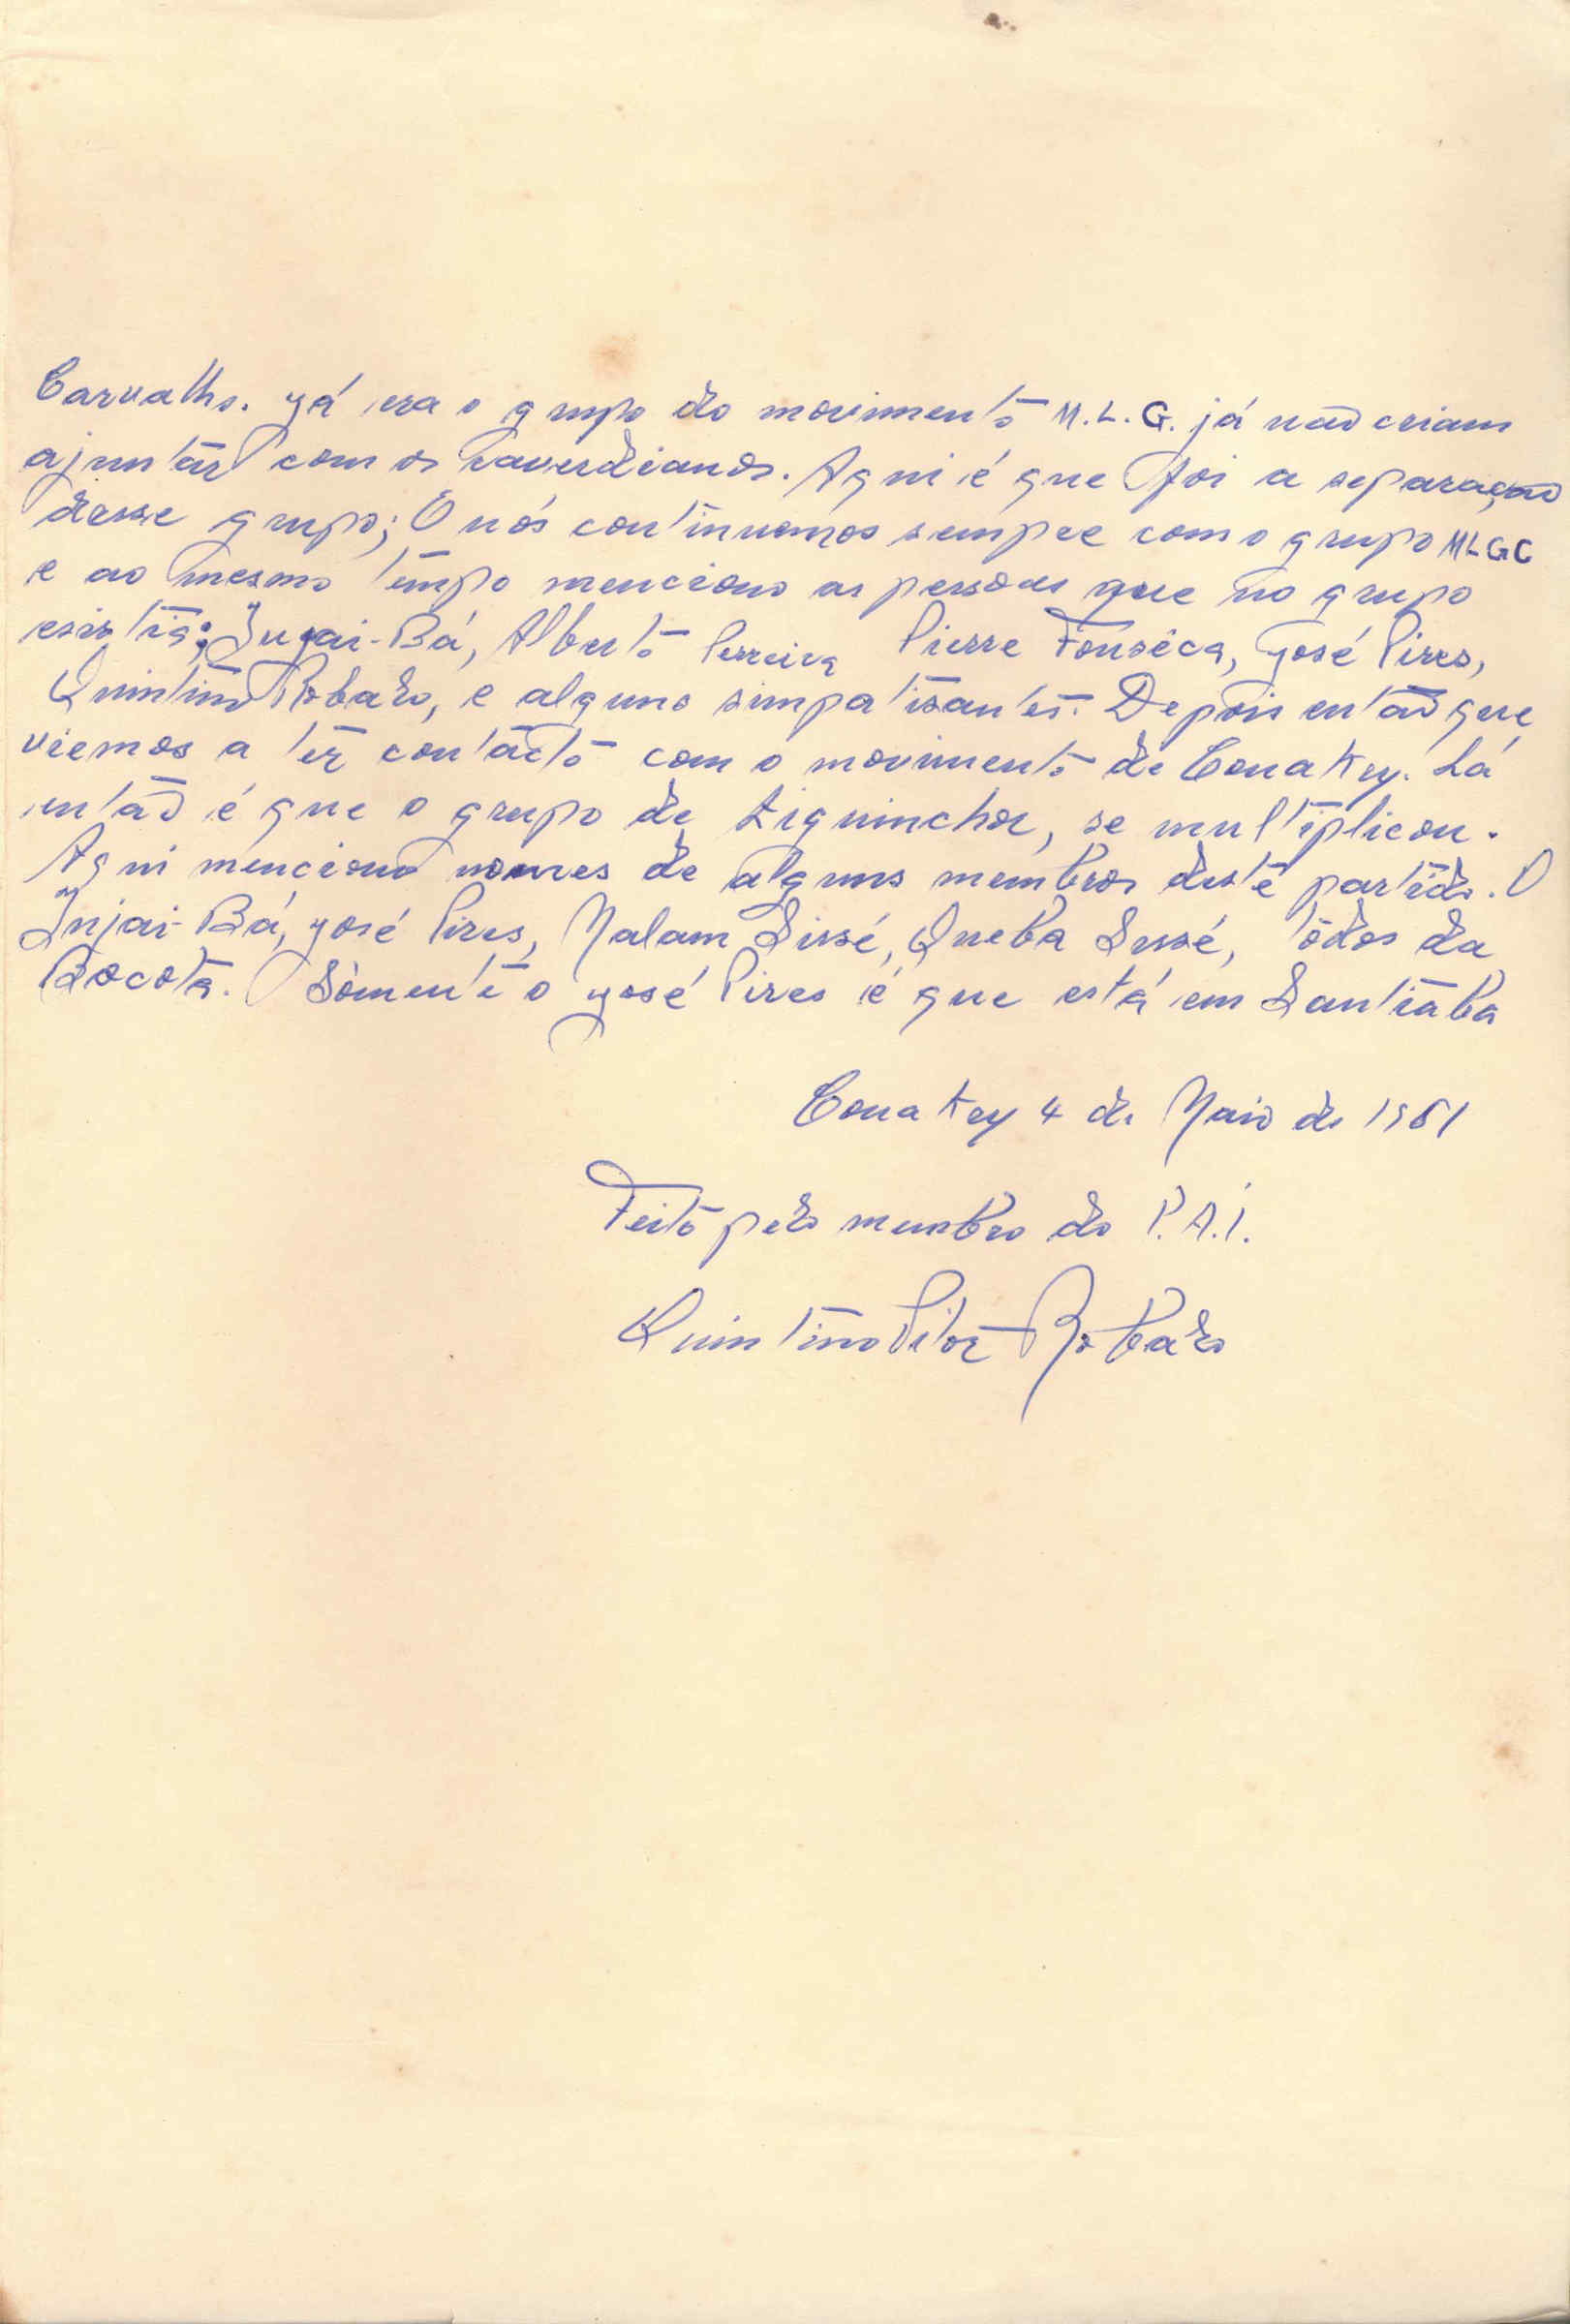 Carvalho. yá era o grupo do movimento M.L.G. já não criam
ajuntár com os caverdianos. Aqui é que foi a separação
desse grupo; E nós continuamos sempre com o grupo MLGC
e ao mesmo tempo menciono as pessoas que no grupo
esistia; Injai-Bá, Alberto Perreira Pierre Fonsêca, yosé Pires,
Quintino Robalo, e alguns simpatisantes. Depois então que
viemos a ter contácto com o movimento de Conakry. Lá
então é que o grupo de Ziguinchor, se multiplicou.
Aqui menciono nomes de alguns membros deste partido. O
Injai-Bá, yosé Pires, Malam Sissé, Queba Sissé, tôdos da
Bocota. Sòmente o yosé Pires é que está em Santiaba
Conakry 4 de Maio de 1961
Feito pelo membro do P.A.I.
Quintino Vitor Robalo